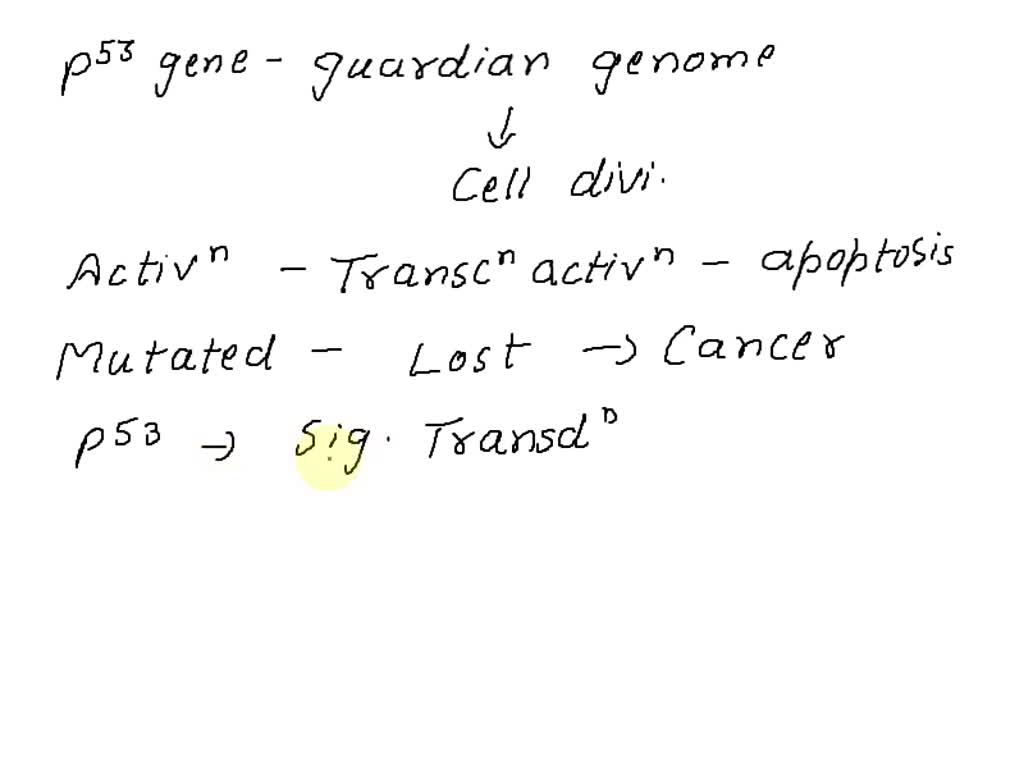 p⁵³ gene - guardian genome
↓
Cell divi.
Activⁿ - Transcⁿ activⁿ - apoptosis
Mutated - Lost → Cancer
p53 → Sig. Transdⁿ